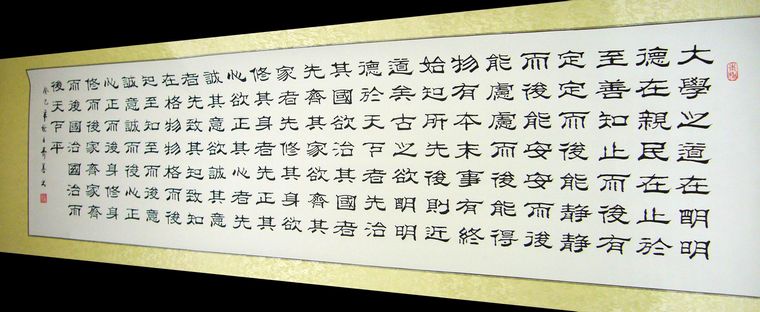 大學之道在明明
德在親民在止於
至善知止而後有
定定而後能靜靜
而後能安安而後
能慮慮而後能得
物有本末事有終
始知所先後則近
道矣古之欲明明
德於天下者先治
其國欲治其國者
先齊其家欲齊其
家者先修其身欲
修其身者先正其
心欲正其心者先
誠其意欲誠其意
者先致其知致知
在格物物格而後
知至知至而後意
誠意誠而後心正
心正而後身修身
修而後家齊家齊
而後國治國治而
後天下平
癸巳年秋月